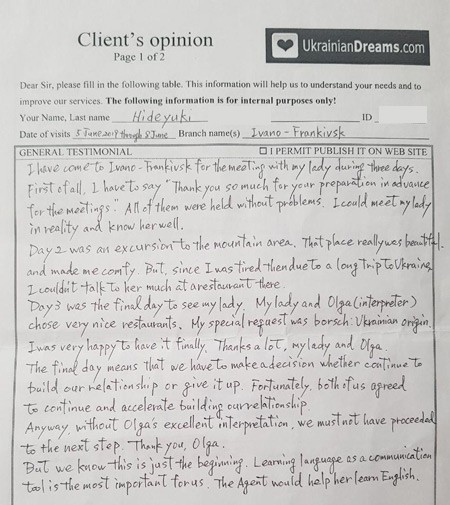 Client's opinion
Page 1 of 2
UkrainianDreams.com
Dear Sir, please fill in the following table. This information will help us to understand your needs and to
improve our services. The following information is for internal purposes only!
Your Name, Last name Hideyuki ID
Date of visits 5 June 2019 through 8 June Branch name(s) Ivano-Frankivsk
GENERAL TESTIMONIAL ☐ I PERMIT PUBLISH IT ON WEB SITE
I have come to Ivano-Frankivsk for the meeting with my lady during three days.
First of all, I have to say "Thank you so much for your preparation in advance
for the meetings." All of them were held without problems. I could meet my lady
in reality and know her well.
Day 2 was an excursion to the mountain area. That place really was beautiful.
and made me comfy. But, since I was tired then due to a long trip to Ukraine,
I couldn't talk to her much at a restaurant there.
Day 3 was the final day to see my lady. My lady and Olga (interpreter)
chose very nice restaurants. My special request was borsch: Ukrainian origin.
I was very happy to have it finally. Thanks a lot, my lady and Olga.
The final day means that we have to make a decision whether continue to
build our relationship or give it up. Fortunately, both of us agreed
to continue and accelerate building our relationship.
Anyway, without Olga's excellent interpretation, we must not have proceeded
to the next step. Thank you, Olga.
But we know this is just the beginning. Learning language as a communication
tool is the most important for us. The Agent would help her learn English.